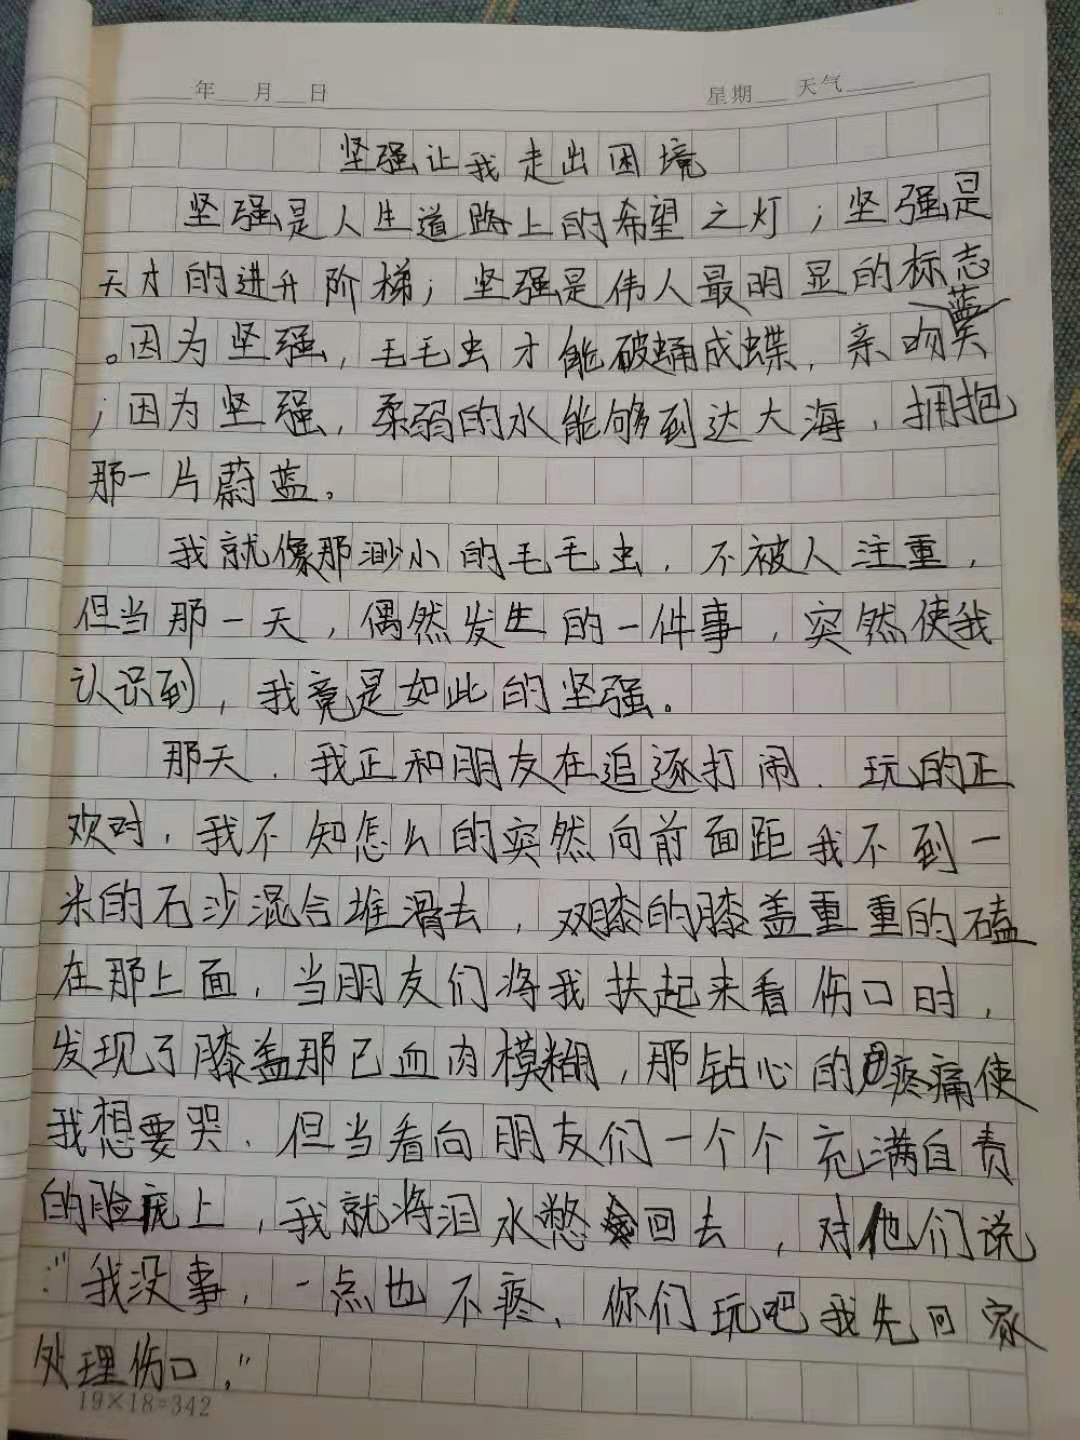 年 月 日 星期 天气
坚强让我走出困境
坚强是人生道路上的希望之灯；坚强是
天才的进升阶梯；坚强是伟人最明显的标志
。因为坚强，毛毛虫才能破蛹成蝶，亲吻
；因为坚强，柔弱的水能够到达大海，拥抱
那一片蔚蓝。
我就像那渺小的毛毛虫，不被人注重，
但当那一天，偶然发生的一件事，突然使我
认识到，我竟是如此的坚强。
那天，我正和朋友在追逐打闹，玩的正
欢时，我不知怎么的突然向前面距我不到一
米的石沙混合堆滑去，双膝的膝盖重重的磕
在那上面，当朋友们将我扶起来看伤口时，
发现了膝盖那已血肉模糊，那钻心的疼痛使
我想要哭，但当看向朋友们一个个充满自责
的脸庞上，我就将泪水憋回去，对他们说
："我没事，一点也不疼，你们玩吧我先回家
处理伤口，"
19×18=342